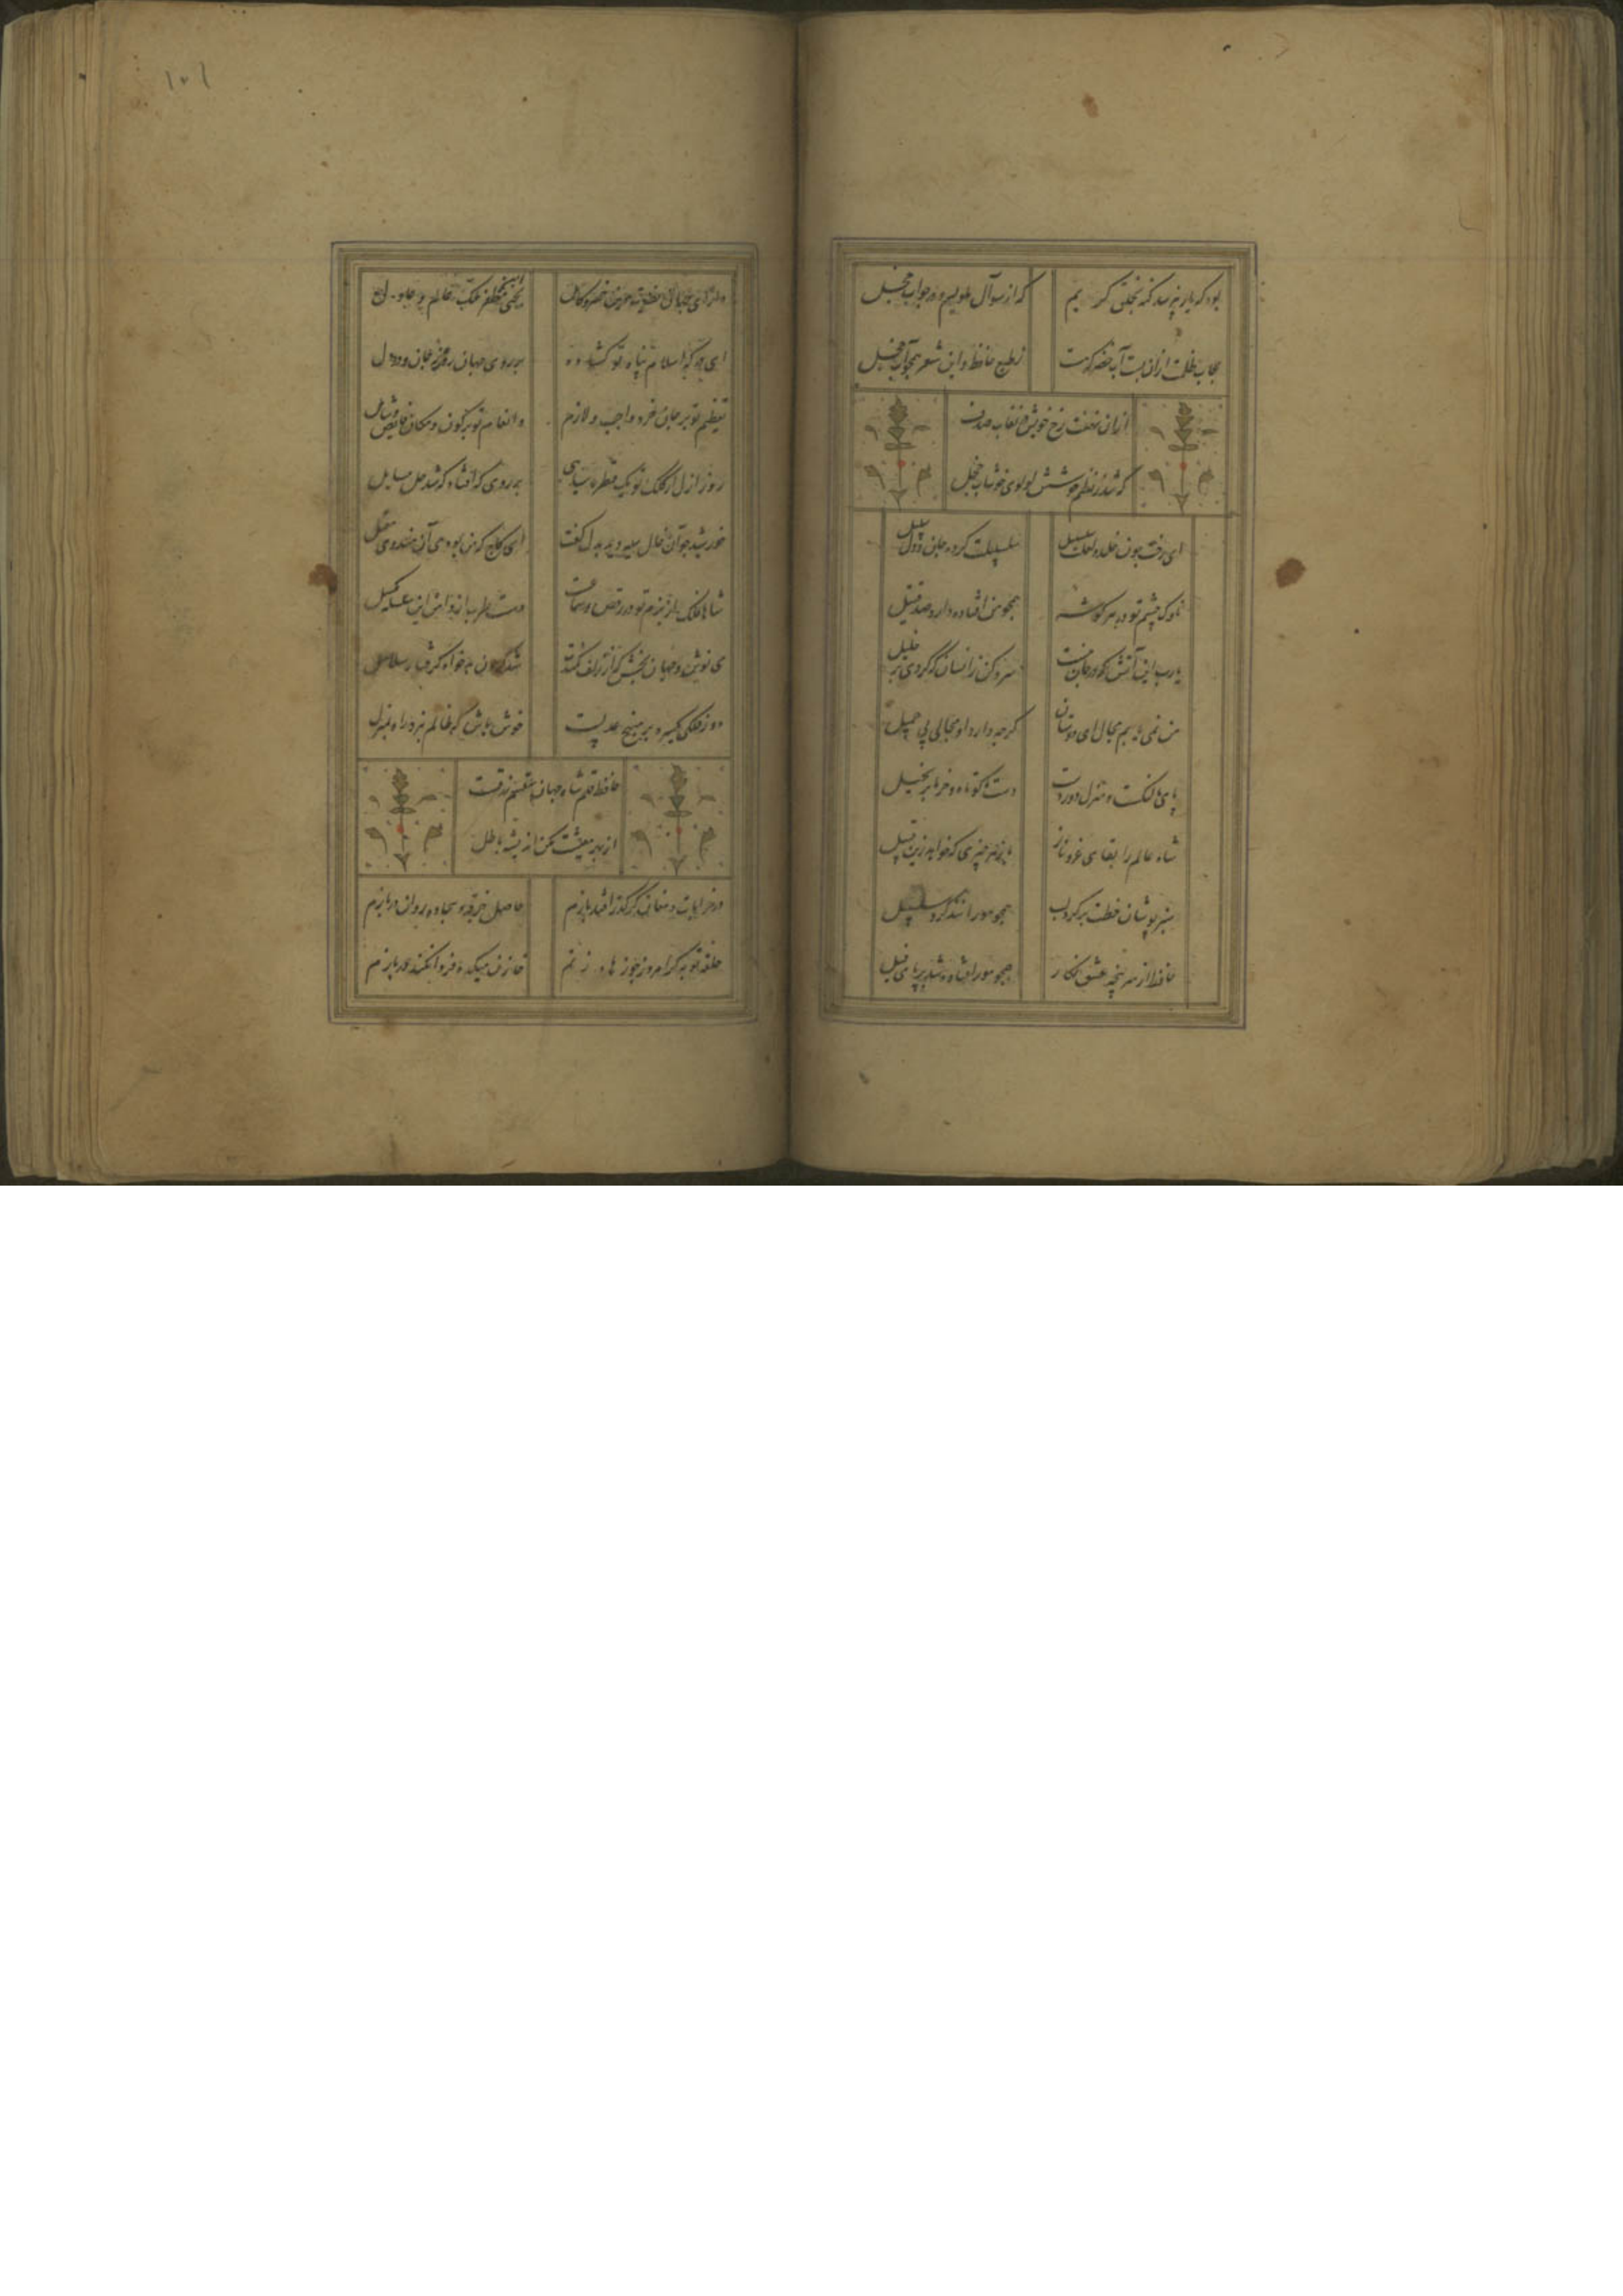 بود که یار نپرسد گنه بخلق کریم
که از سوآل ملولیم و در جواب خجل
حجاب ظلمت ازان بست آب خضر که گشت
ز طبع حافظ و این شعر همچو آب خجل
ازان نهفت رخ خویش در نقاب صدف
که شد ز نظم خوشش لولوی خوشاب خجل
ای رخت چون خلد و لعلت سلسبیل
سلسبیلت کرده جان و دل سبیل
ناوک چشم تو در هر گوشه
همچو من افتاده دارد صد قتیل
یا رب این آتش که در جان منست
سرد کن زانسان که کردی بر خلیل
من نمی یابم مجال ای دوستان
گرچه دارد او جمالی بس جمیل
پای ما لنگست و منزل دوردست
دست ما کوتاه و خرما بر نخیل
شاه عالم را بقای عز و ناز
باد و هر چیزی که خواهد زین قبیل
سبزپوشان خطت بر گرد لب
همچو مورانند گرد سلسبیل
حافظ از سر پنجه عشق نگار
همچو مور افتاده شد در پای فیل
۱۰۱
دارای جهان نصرت دین خسرو کامل
یحیی مظفر ملک عالم عادل
ای درگه اسلام پناه تو گشاده
بر روی جهان روزنه جان و در دل
تعظیم تو بر جان و خرد واجب و لازم
وانعام تو بر کون و مکان فایض و شامل
روز ازل از کلک تو یک قطره سیاهی
بر روی مه افتاد که شد حل مسایل
خورشید چو آن خال سیه دید به دل گفت
ای کاج که من بودمی آن هندوی مقبل
شاها فلک از بزم تو در رقص و سماعست
دست طرب از دامن این زمزمه مگسل
می نوش و جهان بخش که از زلف کمندت
شد گردن بدخواه گرفتار سلاسل
دور فلکی یکسره بر منهج عدلست
خوش باش که ظالم نبرد راه بمنزل
حافظ قلم شاه جهان مقسم رزقست
از بهر معیشت مکن اندیشه باطل
در خرابات مغان گر گذر افتد بازم
حاصل خرقه و سجاده روان دربازم
حلقه توبه گر امروز چو زهاد زنم
خازن میکده فردا نکند در بازم